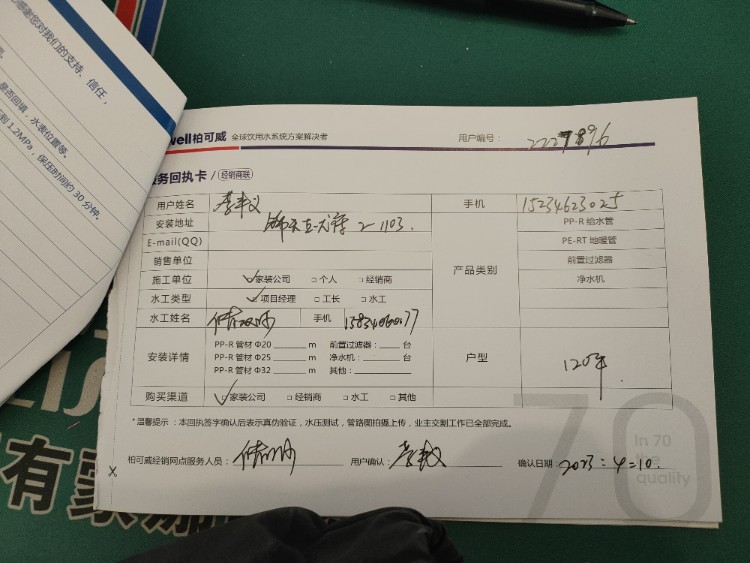 感谢您对我们的支持、信任，
是否回填，水表位置等。
1.2MPa，保压时间约30分钟。
well柏可威 全球饮用水系统方案解决者 用户编号：
务回执卡/经销商联
用户姓名 手机 15234623025
安装地址 2-1103. PP-R 给水管
E-mail(QQ) PE-RT 地暖管
销售单位 产品类别 前置过滤器
施工单位 家装公司 □个人 □经销商 净水机
水工类型 项目经理 □工长 □水工
水工姓名 手机 15834060177
安装详情 PP-R 管材 Φ20 m 前置过滤器： 台 户型 120平
PP-R 管材 Φ25 m 净水机： 台
PP-R 管材 Φ32 m 其他：
购买渠道 家装公司 □经销商 □水工 □其他
*温馨提示：本回执签字确认后表示真伪验证，水压测试，管路图拍摄上传，业主交割工作已全部完成。
70
In 70
the
quality
柏可威经销网点服务人员： 用户确认： 确认日期：2023:4=10.
有家